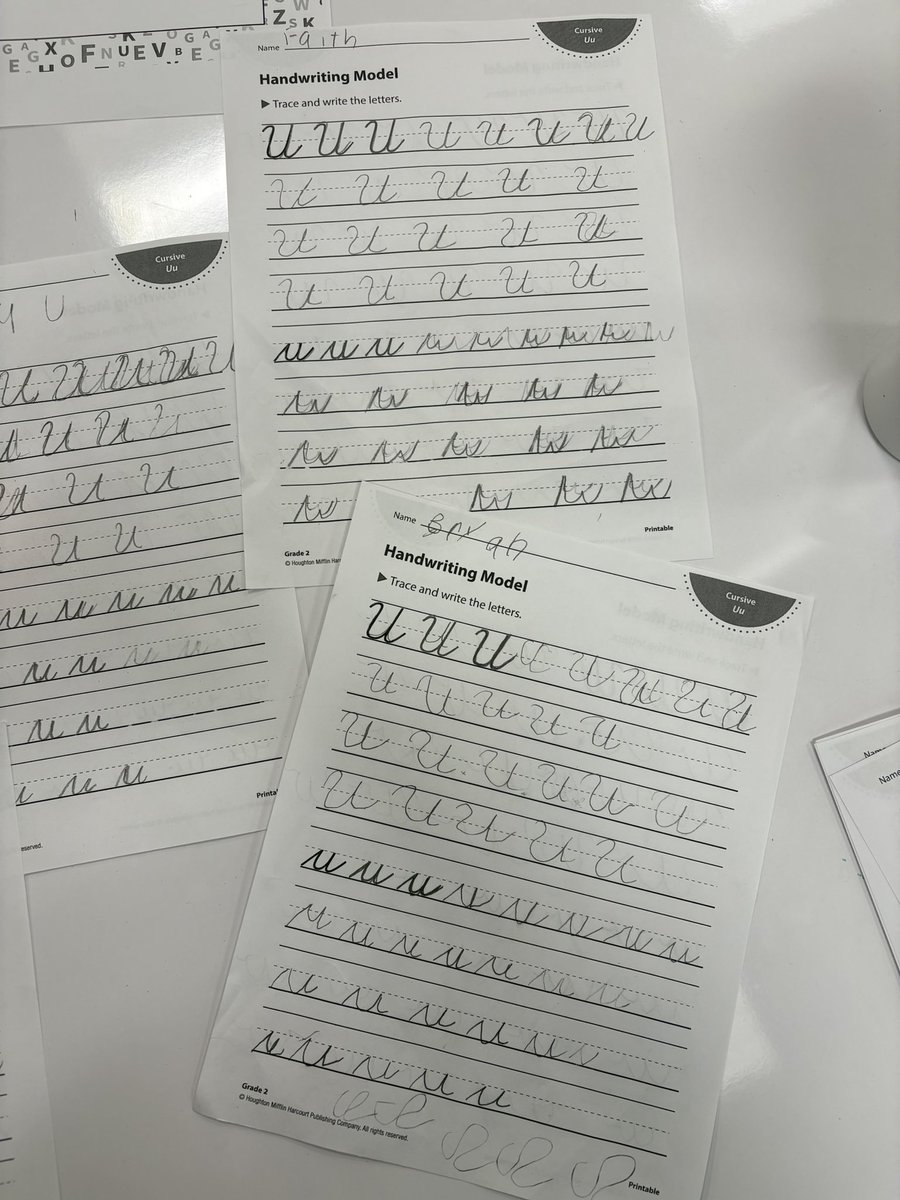 Z S K
G A X O F N U E V B E G
E G
Name Faith
Cursive
Uu
Handwriting Model
▶ Trace and write the letters.
U U U U U U U U
U U U U U
U U U U U
U U U U U
u u u u u u u u u
u u u u u
u u u u u
u u u u
Printable
Grade 2
© Houghton Mifflin
Cursive
Uu
U
U U U U U U
U U U U
U U U
U U
u u u u u
u u u u
u u
u u u
eserved.
Name
Handwriting Model
▶ Trace and write the letters.
Cursive
Uu
U U U U U U U U
U U U U U
U U U U U U
U U U U U
u u u u u u u u
u u u u u u u
u u u u u u
u u u u u
Grade 2
© Houghton Mifflin Harcourt Publishing Company. All rights reserved.
Printable
Name
Name